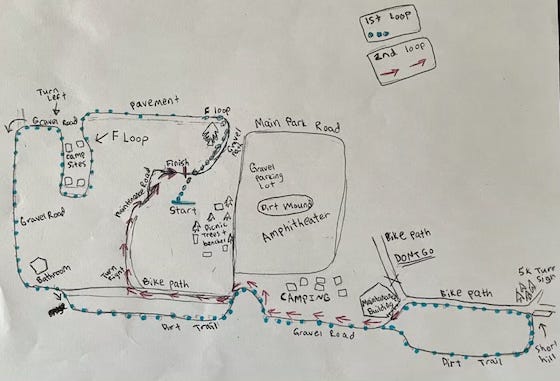 1st Loop
2nd loop
Turn
Left
Pavement
F loop
Gravel Road
F Loop
Camp
Sites
Main Park Road
Gravel
Parking
Lot
Dirt Mound
Amphitheater
Finish
Maintenance Road
Start
Picnic
Trees +
benches
Gravel Road
Bathroom
Turn
Right
Bike path
Dirt Trail
CAMPING
Gravel Road
Bike path
DON'T GO
Maintenance
Building
Bike path
5K Turn
Sign
Short
hill
Dirt Trail